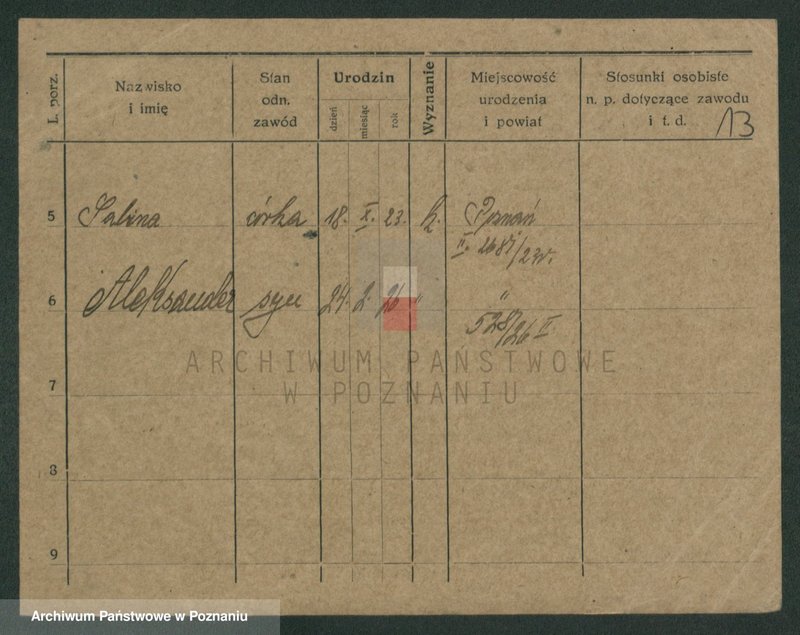 L. porz.
Nazwisko
i imię
Stan
odn.
zawód
Urodzin
dzień
miesiąc
rok
Wyznanie
Miejscowość
urodzenia
i powiat
Stosunki osobiste
n. p. dotyczące zawodu
i t. d.
13
5 córka 18. X. 23. k. Poznań
II. 2687/23r.
6 Aleksander syn 24. 2. 26 " "
528/26 II
ARCHIWUM PAŃSTWOWE
W POZNANIU
7
8
9
Archiwum Państwowe w Poznaniu